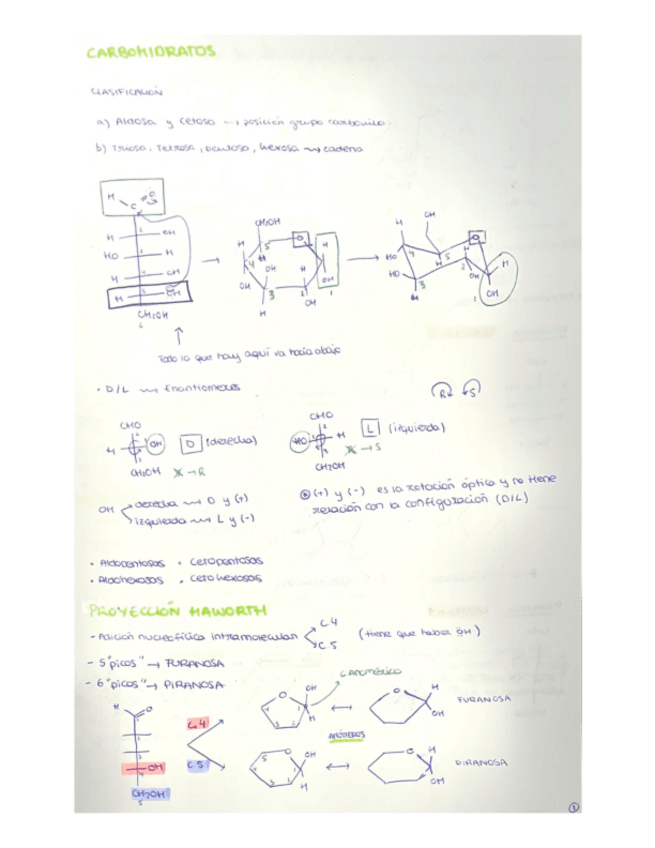 CARBOHIDRATOS
CLASIFICACIÓN
a) Aldosa y cetosa → posición grupo carbonilo
b) Triosa, Tetrosa, pentosa, hexosa → cadena
H C O
H OH
HO H
H OH
H OH
CH2OH
6
CH2OH
O
H 5 H
4 H
OH H
OH 3 2 OH 1
H OH
H OH
HO 4 5 O
HO H 2 H
3 OH
H 1 OH
Todo lo que hay aquí va hacia abajo
· D/L → Enantiómeros
R S
CHO
H OH D (derecha)
CH2OH → R
CHO
HO H L (izquierda)
→ S
CH2OH
OH derecha → D y (+)
izquierda → L y (-)
(+) y (-) es la rotación óptica y no tiene
relación con la configuración (D/L)
· Aldopentosas · Cetopentosas
· Aldohexosas · Cetohexosas
PROYECCIÓN HAWORTH
- Adición nucleofílica intramolecular C.4
C.5 (tiene que haber OH)
- 5 "picos" → FURANOSA
- 6 "picos" → PIRANOSA
C anomérico
H O
OH
CH2OH
5
C.4
C.5
O OH
1 H
3 2
O H
OH
FURANOSA
ANÓMEROS
5 O OH
4 1
3 2 H
O H
OH
PIRANOSA
1